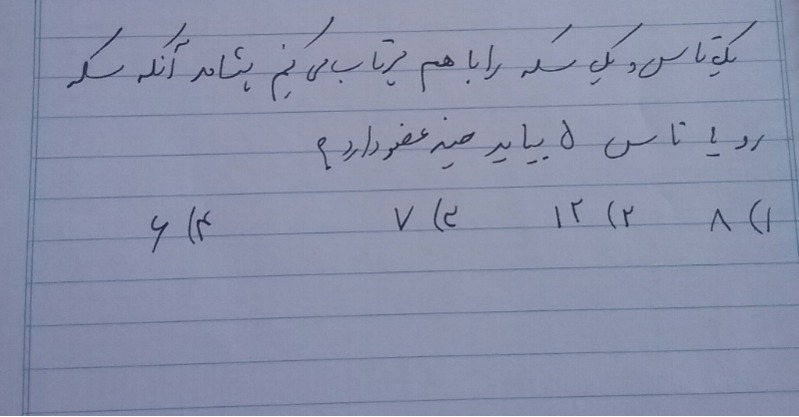 یک تاس و یک سکه را با هم پرتاب می کنیم پیشامد آنکه سکه
رو یا تاس ۵ بیاید چند عضو دارد؟
۱) ۸ ۲) ۱۲ ۳) ۷ ۴) ۶